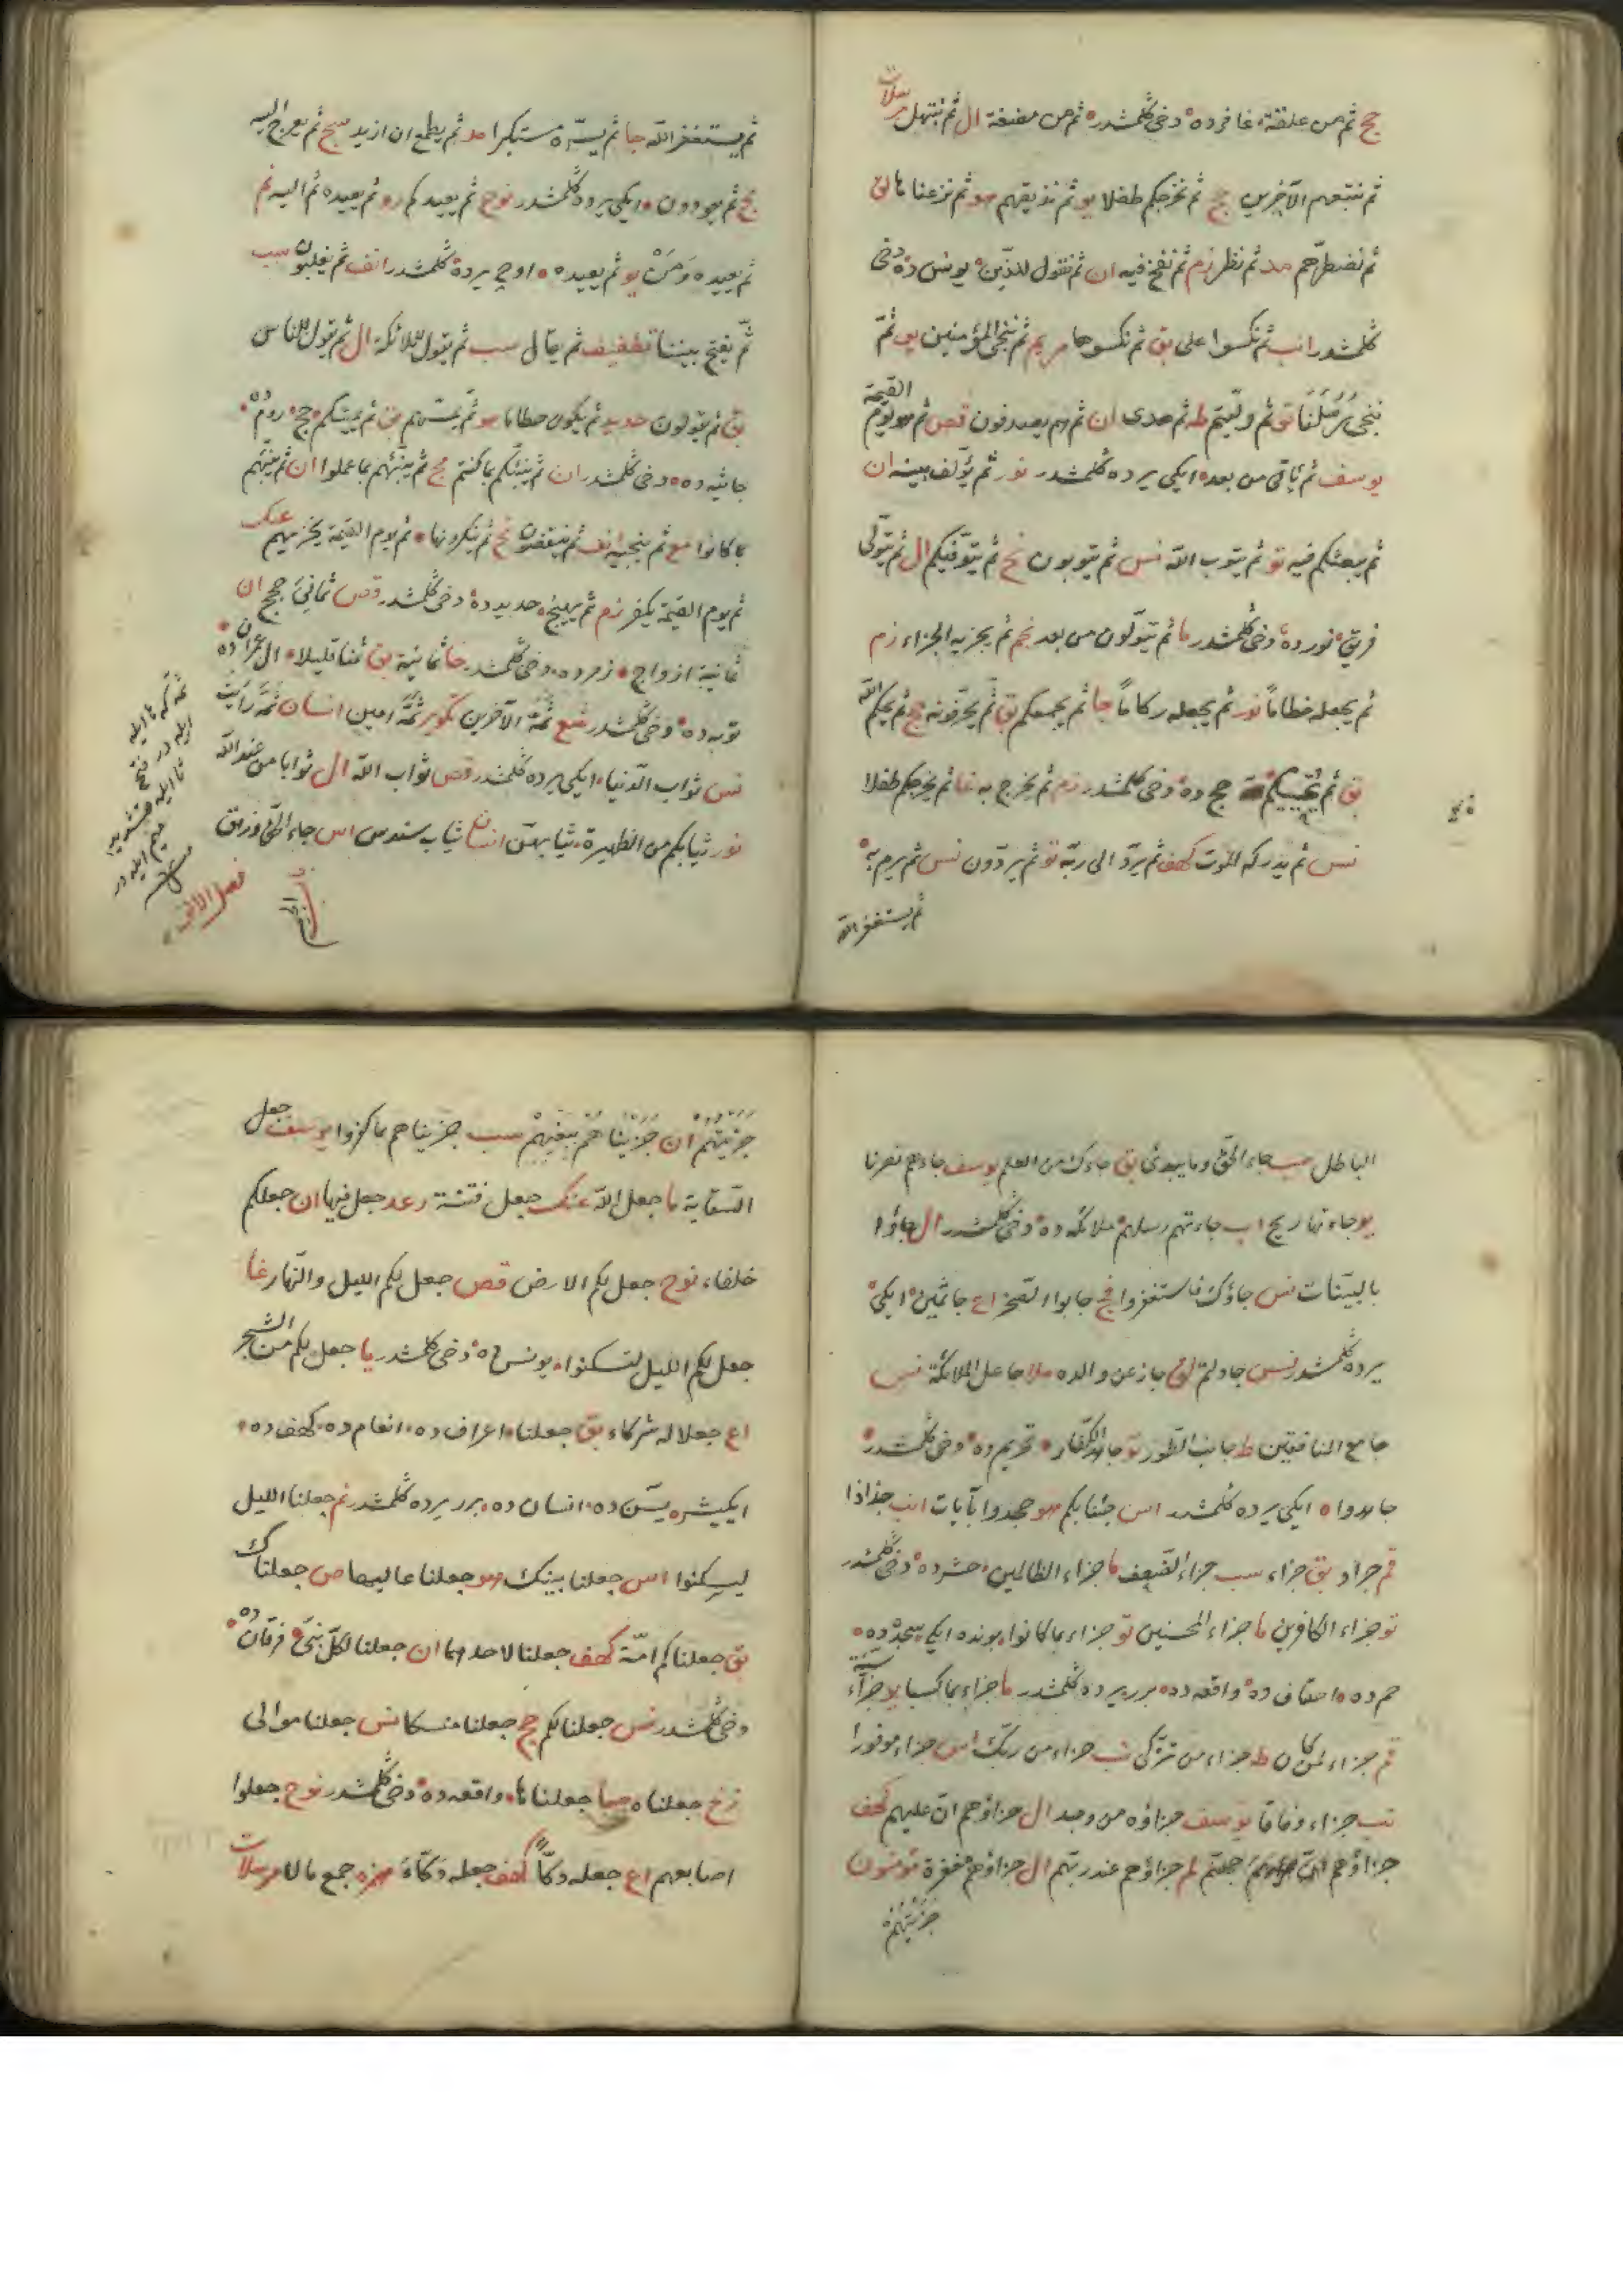 حج ثم من علقة غافرده دخی گلمشدر ثم من مضغة ال ثم نبتهل مرسلات
ثم نتبعهم الآخرين حج ثم نخرجكم طفلا يو ثم نذيقهم هو ثم نزعناها لق
ثم نضطرّهم مد ثم نظر زم ثم نفخ فيه ان ثم نقول للذين يونس ده دخی
گلمشدر انب ثم نكسوا على بق ثم نكسوها مريم ثم ننجى المؤمنين يو ثمّ
ننجى رسلنا تو ثم ولّيتم طه ثم هدى ان ثم هم يصدفون قص ثم هو يوم القيمة
يوسف ثم يأتى من بعد ايكی يرده گلمشدر نور ثم يؤلف بينه ان
ثم يبعثكم فيه تو ثم يتوب الله نس ثم يتوبون نح ثم يتوفيكم ال ثم يتولّى
فريق نور ده دخی گلمشدر ما ثم يتولون من بعد نجم ثم يجزيه الجزاء زم
ثم يجعله حطاماً نور ثم يجعله ركاماً جا ثم يجمعكم بق ثم يحرّفونه حج ثم يحكم الله
بق ثم يحييكم حج ده دخی گلمشدر زم ثم يخرج به غا ثم يخرجكم طفلا
نس ثم يدركه الموت كهف ثم يردّ الى ربّه تو ثم يردّون نس ثم يرم به
ثم يستغفر الله
ثم يستغفر الله جا ثم يصرّ مستكبرا مد ثم يطمع ان ازيد سج ثم يعرج اليه
نح ثم يعودون ايكی يرده گلمشدر نوح ثم يعيدكم رو ثم يعيده ثم اليه نم
ثم يعيده ومن يو ثم يعيده اوچ يرده گلمشدر انف ثم يغلبون سب
ثم يفتح بيننا تطفيف ثم يقال سب ثم يقول للملائكة ال ثم يقول للناس
بق ثم يقولون حديد ثم يكون حطاما هو ثم يمسّهم بق ثم يميتكم حج روم
جاثيه ده دخی گلمشدر ان ثم ينبئكم بما كنتم مج ثم ينبّئهم بما عملوا ان ثم ينبّئهم
بما كانوا مع ثم ينجيه انف ثم ينقضون نح ثم ينكرونها ثم يوم القيمة يخزيهم عنك
ثم يوم القيمة يكفر زم ثم يهيج حديد ده دخی گلمشدر قص ثمانى حجج ان
ثمانية ازواج زمر ده دخی گلمشدر حا ثمانية بق ثمنا قليلا ال عمران ده
توبه ده دخی گلمشدر شع ثمّ الآخرين تكوير ثمّ امين انسان ثمّ رايت
نس ثواب الدنيا ايكی يرده گلمشدر قص ثواب الله ال ثوابا من عند الله
نور ثيابكم من الظهيرة ثيابهنّ انسا ثياب سندس اس جاء الحق وزهق
فصل الالف
الباطل سب جاء الحق وما يبدئ بق جاءك من العلم يوسف جاءهم نصرنا
يو جاءتها ريح اب جاءتهم رسلهم ملائكه ده دخی گلمشدر ال جاؤا
بالبيّنات نس جاؤك فاستغفروا فج جابوا الصخر اع جاثمين ايكی
يرده گلمشدر نس جادلتم لق جاز عن والده ملا جاعل الملائكة نس
جامع المنافقين ط جانب الطور تو جاهد الكفار تحريم ده دخی گلمشدر
جاهدوا ايكی يرده گلمشدر اس جئنا بكم هو جحدوا بآيات انب جذاذا
قم جراد بق جزاء سب جزاء الضعف ما جزاء الظالمين حشر ده دخی گلمشدر
تو جزاء الكافرين ما جزاء المحسنين تو جزاء بما كانوا بونده ايكی سجده ده
حم ده احقاف ده واقعه ده برر يرده گلمشدر ما جزاء بما كسبا يو جزآء سيّئة
قم جزاء لمن كان ط جزاء من تزكّى نب جزاء من ربّك اس جزاء موفورا
نب جزاء وفاقا يوسف جزاؤه من وجد ال جزاؤهم انّ عليهم كهف
جزاؤهم جهنّم لم جزاؤهم عند ربّهم ال جزاؤهم مغفرة مؤمنون
جزيتهم
جزيتهم ان جزيناهم ببغيهم سب جزيناهم بما كفروا يوسف جعل
السقاية ما جعل الله عنك جعل فتنة رعد جعل فيها ان جعلكم
خلفاء نوح جعل لكم الارض قص جعل لكم الليل والنهار غا
جعل لكم الليل لتسكنوا يونس ده دخی گلمشدر يا جعل لكم من الشجر
اع جعلا له شركاء بق جعلنا اعراف ده انعام ده كهف ده
ايكيشره يسن ده انسان ده برر يرده گلمشدر نم جعلنا الليل
ليسكنوا اس جعلنا بينك هو جعلنا عاليها ص جعلناك
بق جعلناكم امّة كهف جعلنا لاحدهما ان جعلنا لكلّ نبىّ فرقان ده
دخی گلمشدر نس جعلنا لكم حج جعلنا منسكا نس جعلنا موالى
زخ جعلناه صا جعلناها واقعه ده دخی گلمشدر نوح جعلوا
اصابعهم اع جعله دكّاً كهف جعله دكّاءَ همزه جمع مالا مرسلات